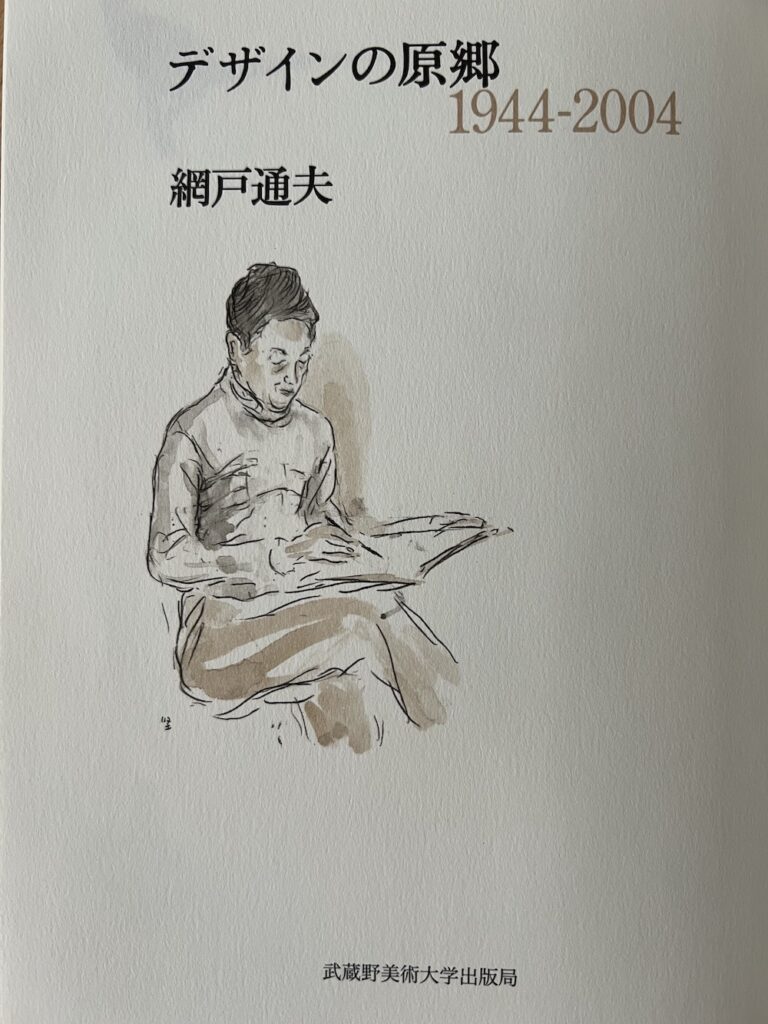 デザインの原郷
1944-2004
網戸通夫
武蔵野美術大学出版局